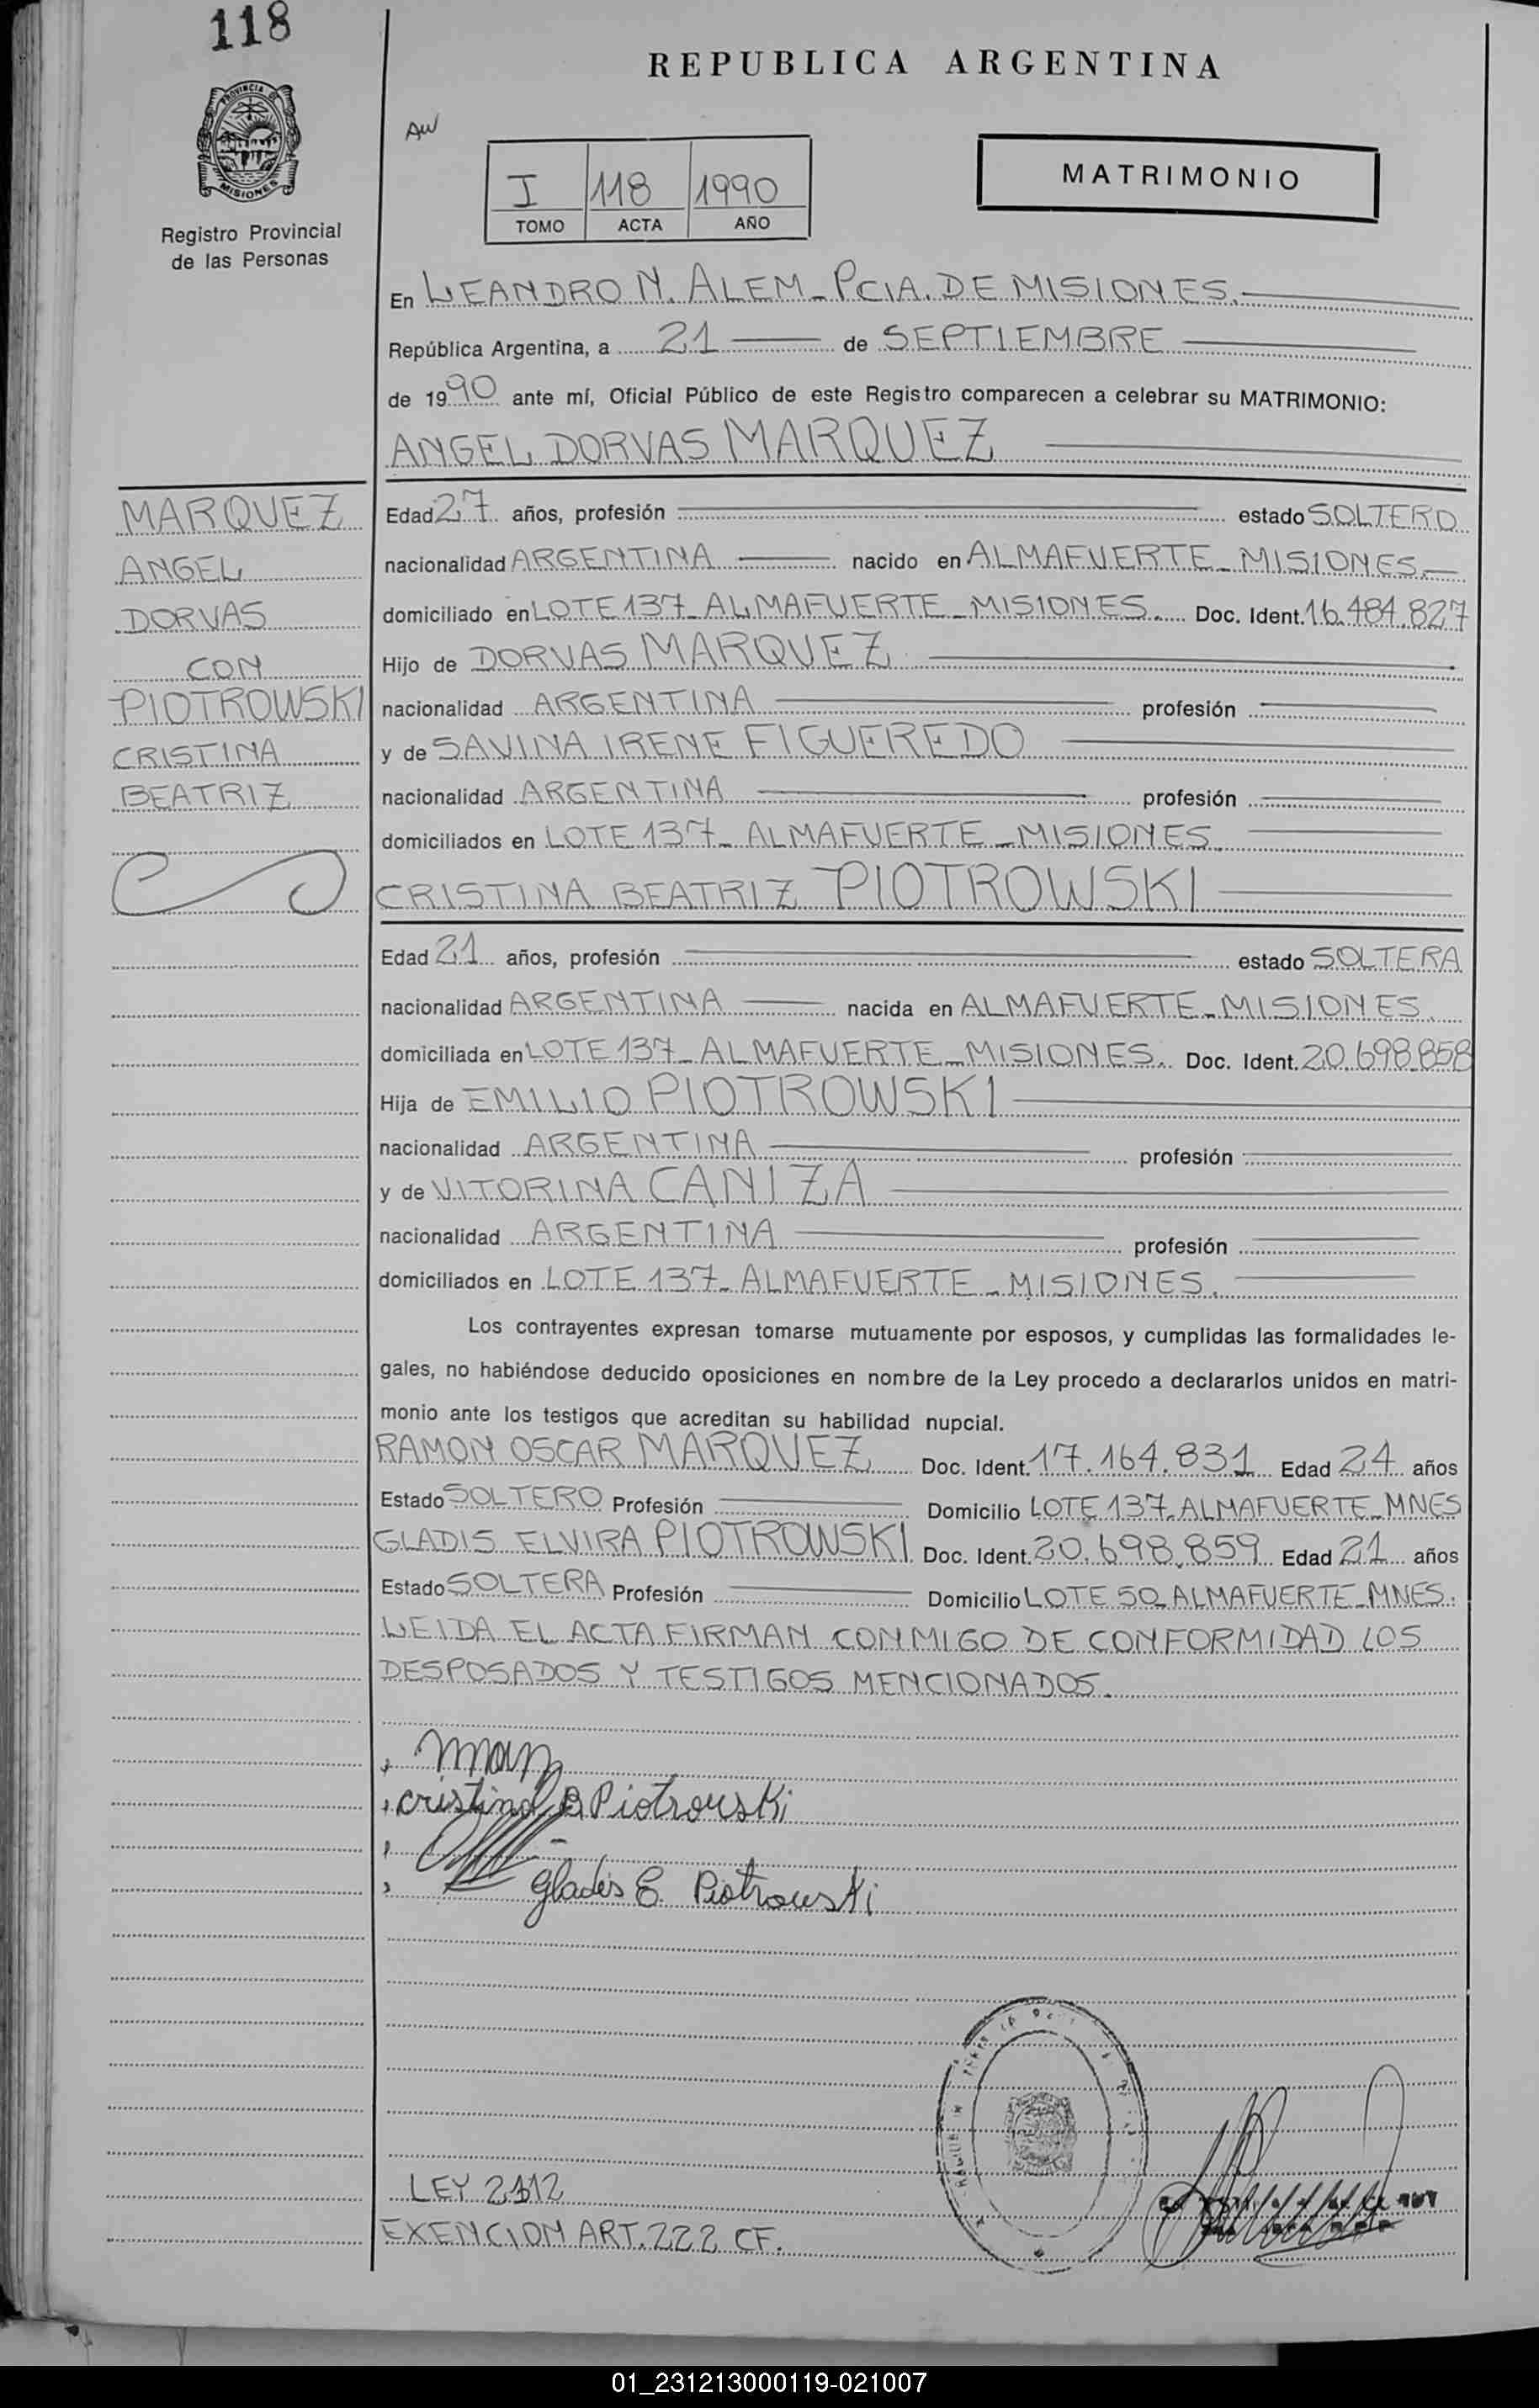 118
PROVINCIA DE
MISIONES
Registro Provincial
de las Personas
REPUBLICA ARGENTINA
AW
I 118 1990
TOMO ACTA AÑO
MATRIMONIO
En LEANDRO N. ALEM_PCIA. DE MISIONES.
República Argentina, a 21 de SEPTIEMBRE
de 1990 ante mí, Oficial Público de este Registro comparecen a celebrar su MATRIMONIO:
ANGEL DORVAS MARQUEZ
MARQUEZ
ANGEL
DORVAS
CON
PIOTROWSKI
CRISTINA
BEATRIZ
Edad 27 años, profesión estado SOLTERO
nacionalidad ARGENTINA nacido en ALMAFUERTE_MISIONES.
domiciliado en LOTE 137_ALMAFUERTE_MISIONES. Doc. Ident. 16.484.827
Hijo de DORVAS MARQUEZ
nacionalidad ARGENTINA profesión
y de SAVINA IRENE FIGUEREDO
nacionalidad ARGENTINA profesión
domiciliados en LOTE 137_ALMAFUERTE_MISIONES.
CRISTINA BEATRIZ PIOTROWSKI
Edad 21 años, profesión estado SOLTERA
nacionalidad ARGENTINA nacida en ALMAFUERTE_MISIONES.
domiciliada en LOTE 137_ALMAFUERTE_MISIONES. Doc. Ident. 20.698.858
Hija de EMILIO PIOTROWSKI
nacionalidad ARGENTINA profesión
y de VITORINA CANIZA
nacionalidad ARGENTINA profesión
domiciliados en LOTE 137_ALMAFUERTE_MISIONES.
Los contrayentes expresan tomarse mutuamente por esposos, y cumplidas las formalidades le-
gales, no habiéndose deducido oposiciones en nombre de la Ley procedo a declararlos unidos en matri-
monio ante los testigos que acreditan su habilidad nupcial.
RAMON OSCAR MARQUEZ Doc. Ident. 17.164.831 Edad 24 años
Estado SOLTERO Profesión Domicilio LOTE 137_ALMAFUERTE_MNES
GLADIS ELVIRA PIOTROWSKI Doc. Ident. 20.698.859 Edad 21 años
Estado SOLTERA Profesión Domicilio LOTE 50_ALMAFUERTE_MNES.
LEIDA EL ACTA FIRMAN CONMIGO DE CONFORMIDAD LOS
DESPOSADOS Y TESTIGOS MENCIONADOS.
cristina B Piotrouski
Gladis E. Piotrouski
LEY 2112
EXENCION ART. 222 CF.
01_231213000119-021007